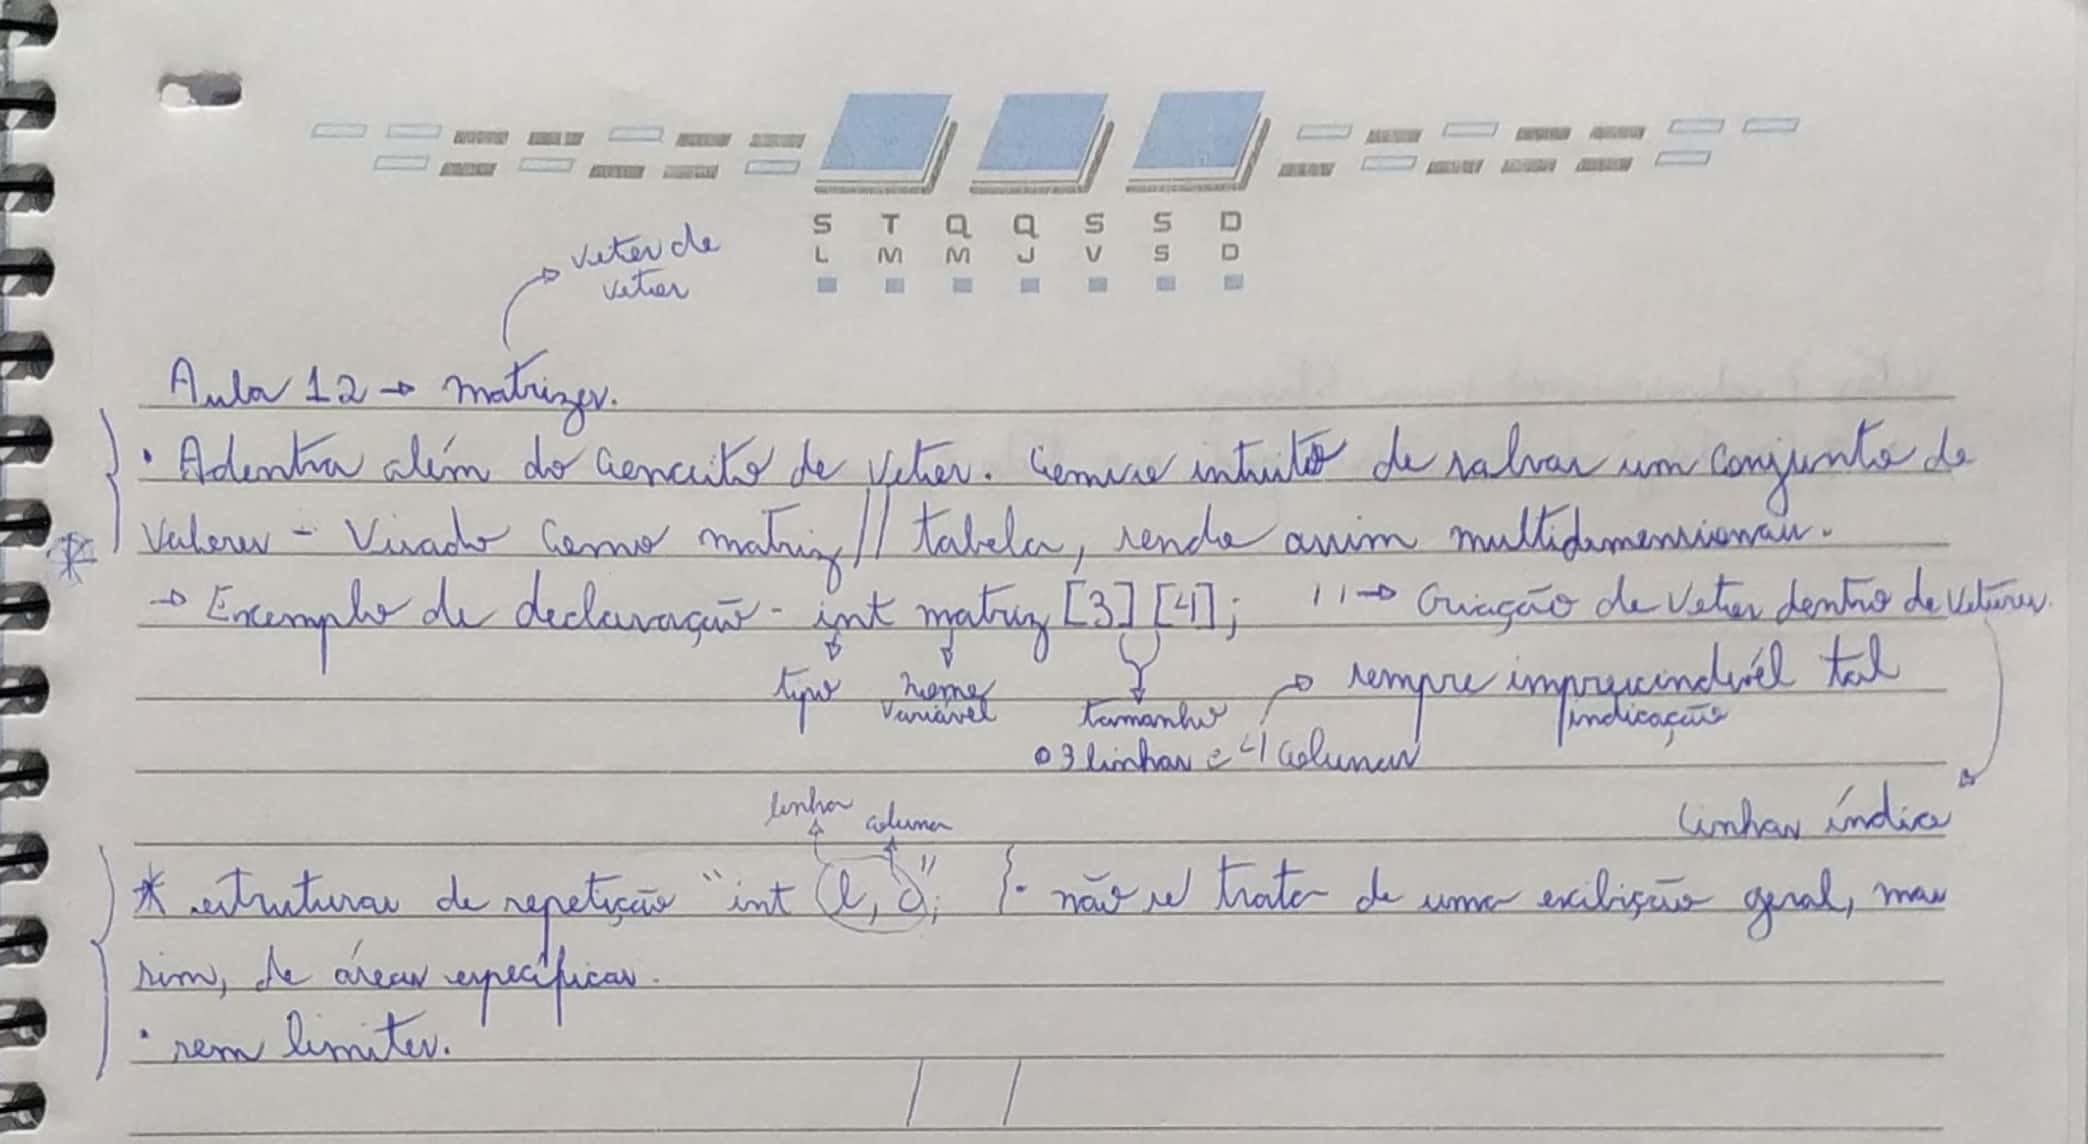 S T Q Q S S D
L M M J V S D
vetor de
vetor
Aula 12 → matrizes.
• Adentra além do conceito de vetor. Com o intuito de salvar um conjunto de
valores - Visado como matriz // tabela, sendo assim multidimensionais.
→ Exemplo de declaração - int matriz [3][4]; 11→ Criação de vetor dentro de vetores.
tipo nome variável tamanho → sempre imprescindível tal indicação
3 linhas e 4 colunas
linha coluna
linhas índice
* estruturas de repetição "int l, c"; }· não se trata de uma exibição geral, mas
sim, de áreas específicas.
• sem limites.